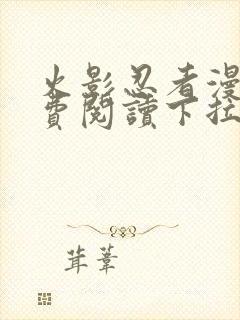 火影忍者漫
費閱讀下拉
茸葦